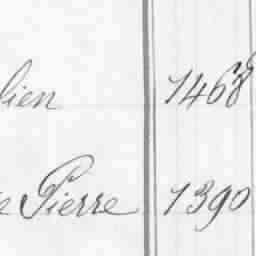 lien 1468
e Pierre 1390